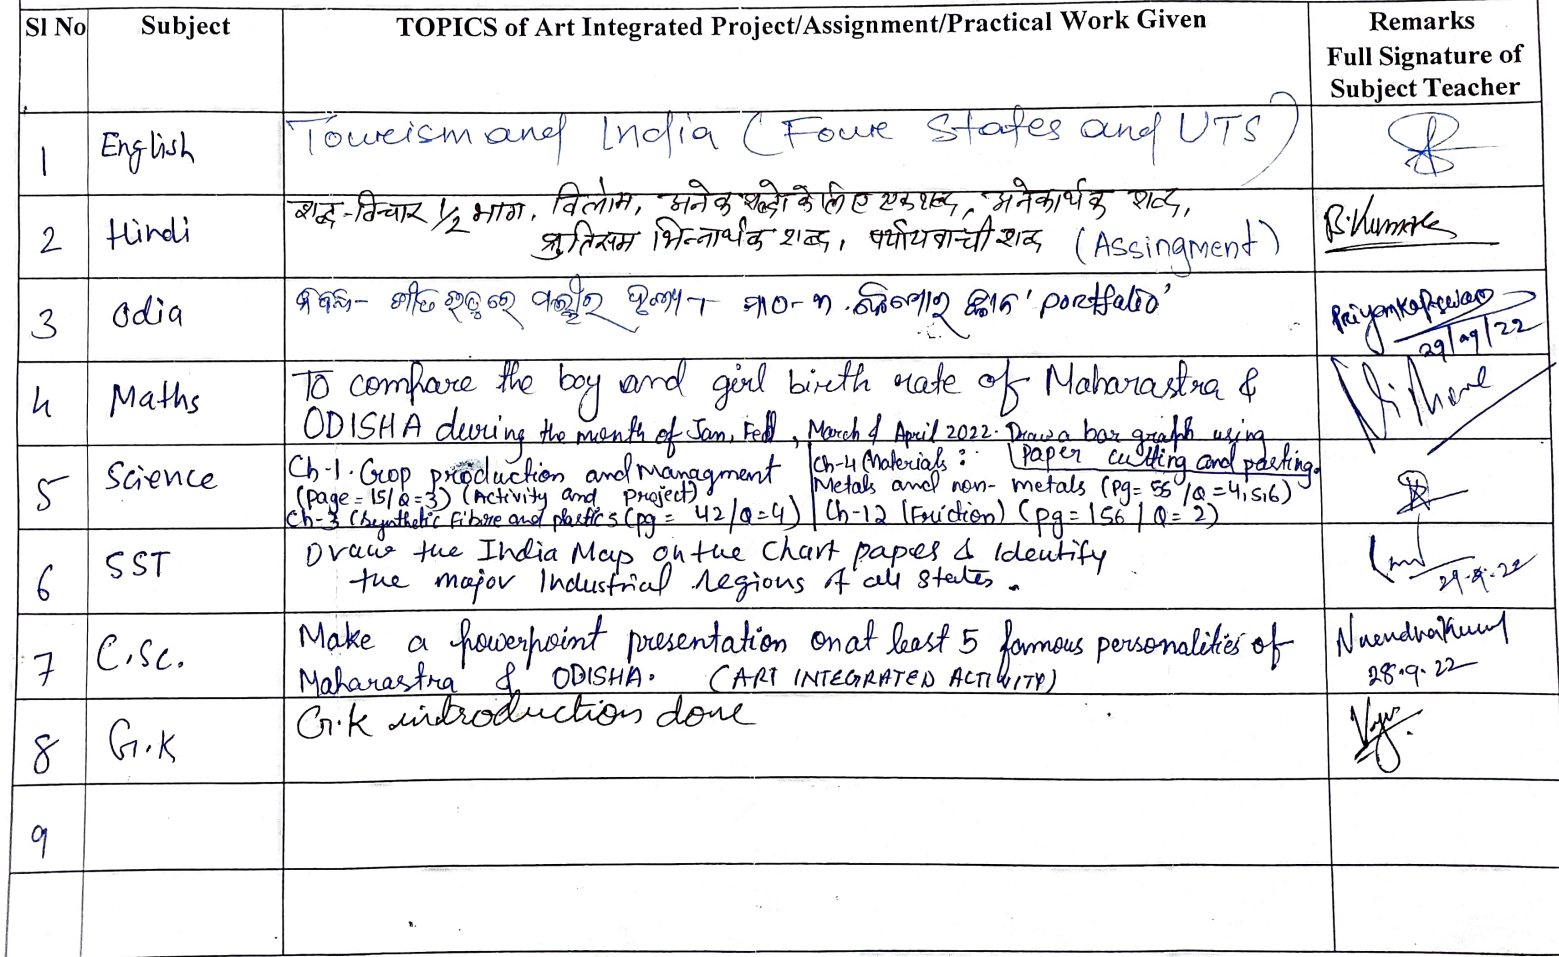 Sl No Subject TOPICS of Art Integrated Project/Assignment/Practical Work Given Remarks
Full Signature of
Subject Teacher
1 English Toureism and India (Foure States and UTS)
2 Hindi शब्द-विचार 1/2 भाग, विलोम, अनेक शब्दो के लिए एक शब्द, अनेकार्थक शब्द,
श्रुतिसम भिन्नार्थक शब्द, पर्यायवाची शब्द (Assingment)
B.Kumar
3 Odia ଶୀତ ଋତୁରେ 'portfalio'
29/09/22
4 Maths To compare the boy and girl bireth rate of Maharastra &
ODISHA during the month of Jan, Feb, March & April 2022. Draw a bar graph using
paper cutting and pasting.
5 Science Ch-1. Crop production and Managment
(page = 15/Q=3) (Activity and project)
Ch-3 (Synthetic Fibire and plastics (pg = 42/Q=4)
Ch-4 (Materials :
Metals and non-metals (pg= 55 /Q =4,5,6)
Ch-12 (Friction) (pg=156 / Q= 2)
6 SST Draw the India Map on the Chart paper & Identify
the major Industrial regions of all states.
29.9.22
7 C.Sc. Make a powerpoint presentation on at least 5 famous personalities of
Maharastra & ODISHA. (ART INTEGRATED ACTIVITY)
28.9.22
8 G.K G.k introduction done
9